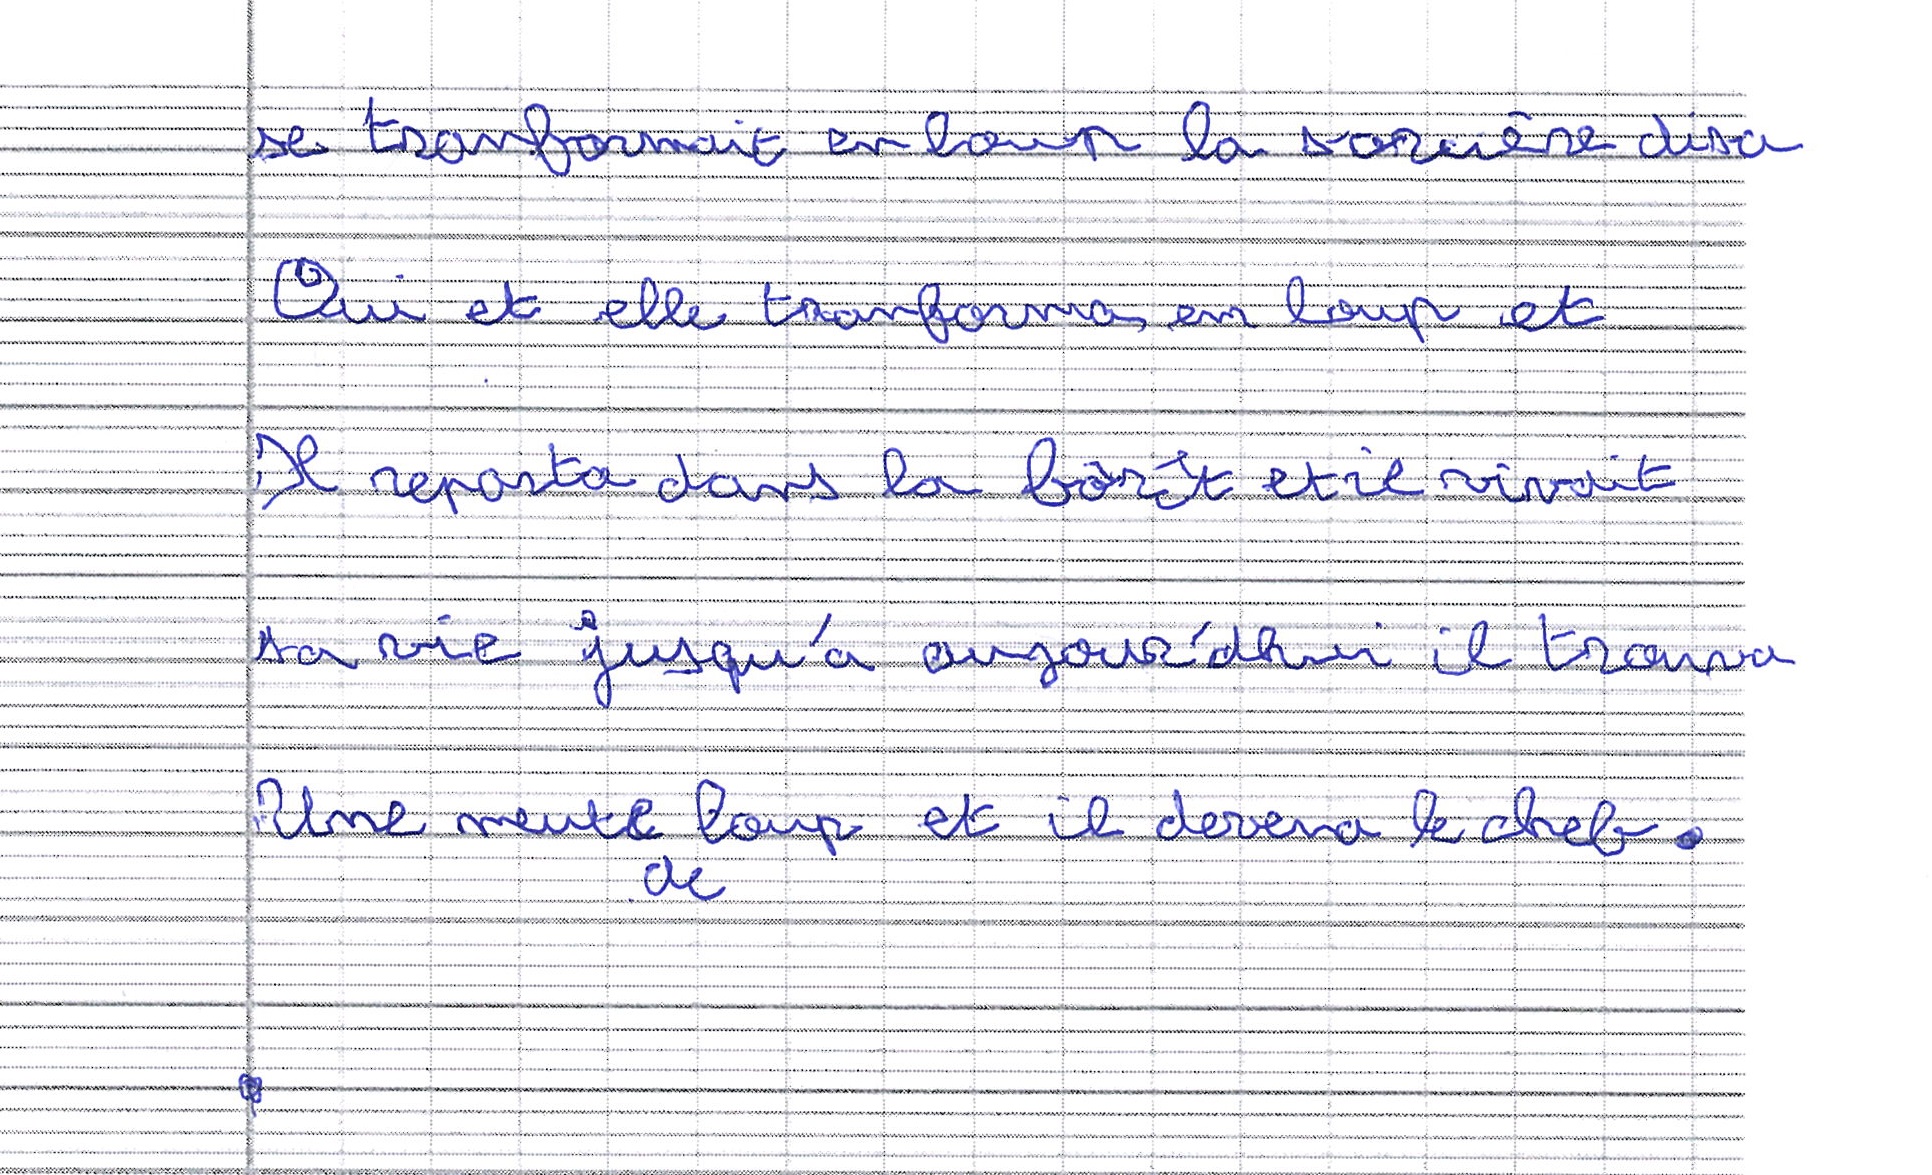 se tranformait en loup la sorcière disa
Oui et elle tranforma en loup et
Il reparta dans la forêt et il vivait
sa vie jusqu'à aujour'dhui il trouva
Une meute loup et il devena le chef.
de